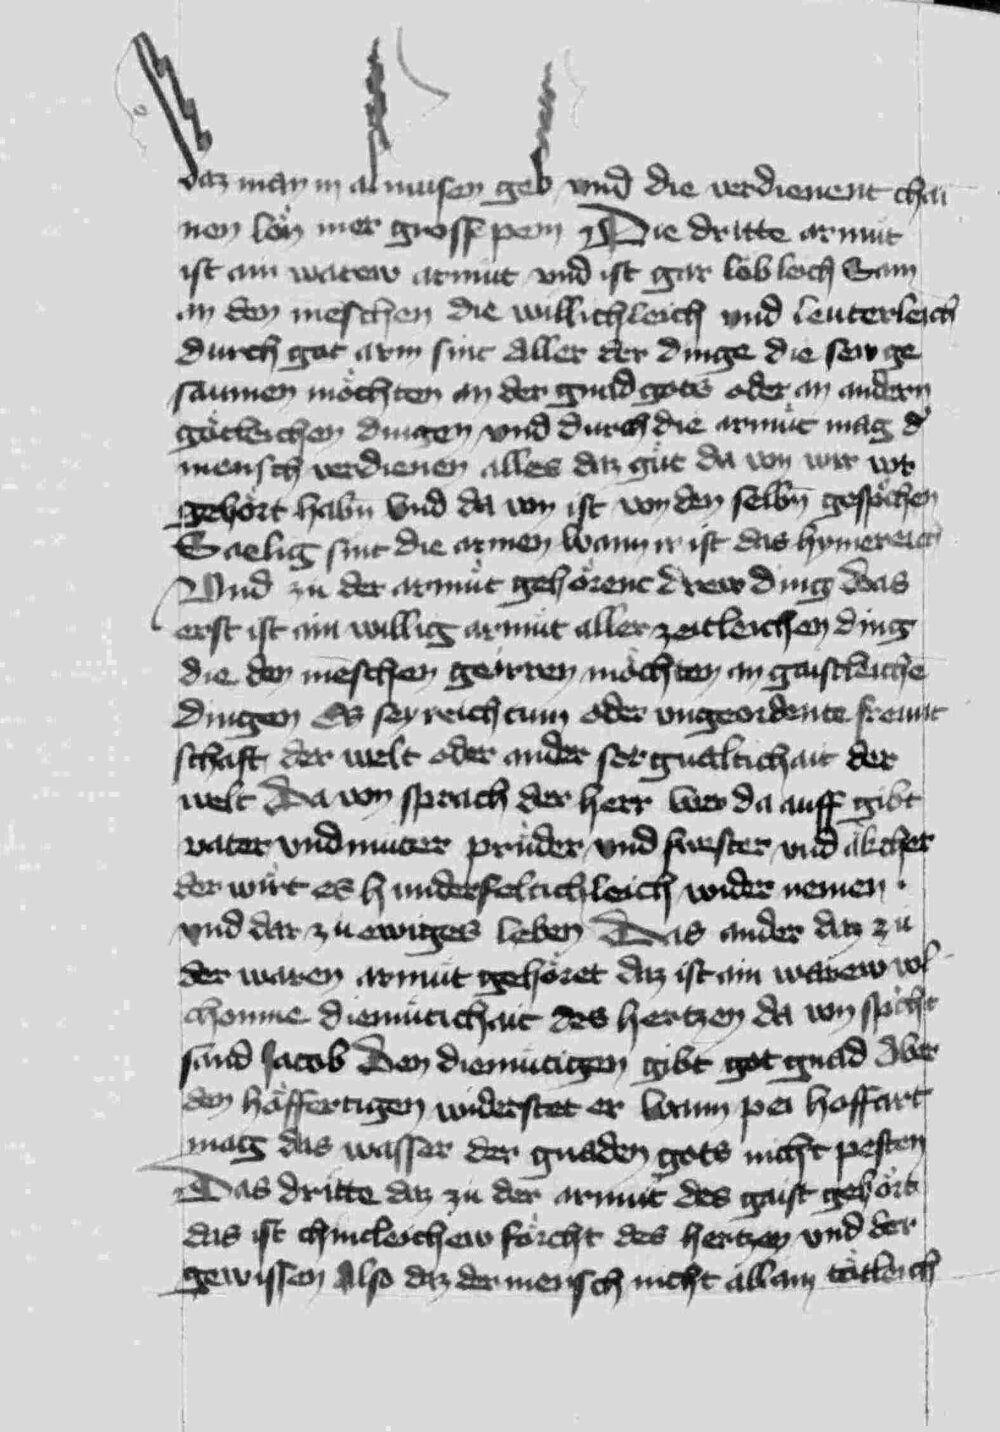 daz man in almusen geb vnd die verdienent chai
nen lon mer grosß pein Die dritte armut
ist ain warew armut vnd ist gar löbleich Sam
an den menschen die willichleich vnd leuterleich
durch got arm sint Aller der dinge die sew ge
saumen möchten an der gnad gots oder an andern
götleichen dingen vnd durch die armüt mag d'
mensch verdienen alles daz güt da von wir vor
gehört habn Vnd da von ist von den selbn gesprochen
Saelig sint die armen Wann ir ist das hymereich
Vnd zu der armüt gehörent drew ding Das
erst ist ain willig armüt aller zeitleichen ding
die den menschen geirren möchten an gaistleichē
dingen Es sey reichtum oder vngeordente freunt
schaft der welt oder ander sorgualtichait der
welt Da von sprach der herr Wer da auff gibt
vater vnd muter prüder vnd swester vnd äkcher
der wirt es hundertfeltichleich wider nemen
vnd dar zu ewiges leben Das ander daz zu
der waren armüt gehöret daz ist ain warew vol
chomne diemütichait des hertzen da von spricht
sand Jacob Den diemütigen gibt got gnad Aber
den höffertigen widerstet er Wann pei hoffart
mag das wasser der gnaden gots nicht pesten
Das dritte daz zu der armüt des gaist gehört
das ist chintleichew förcht des hertzen vnd der
gewissen Also daz der mensch nicht allain tötleich